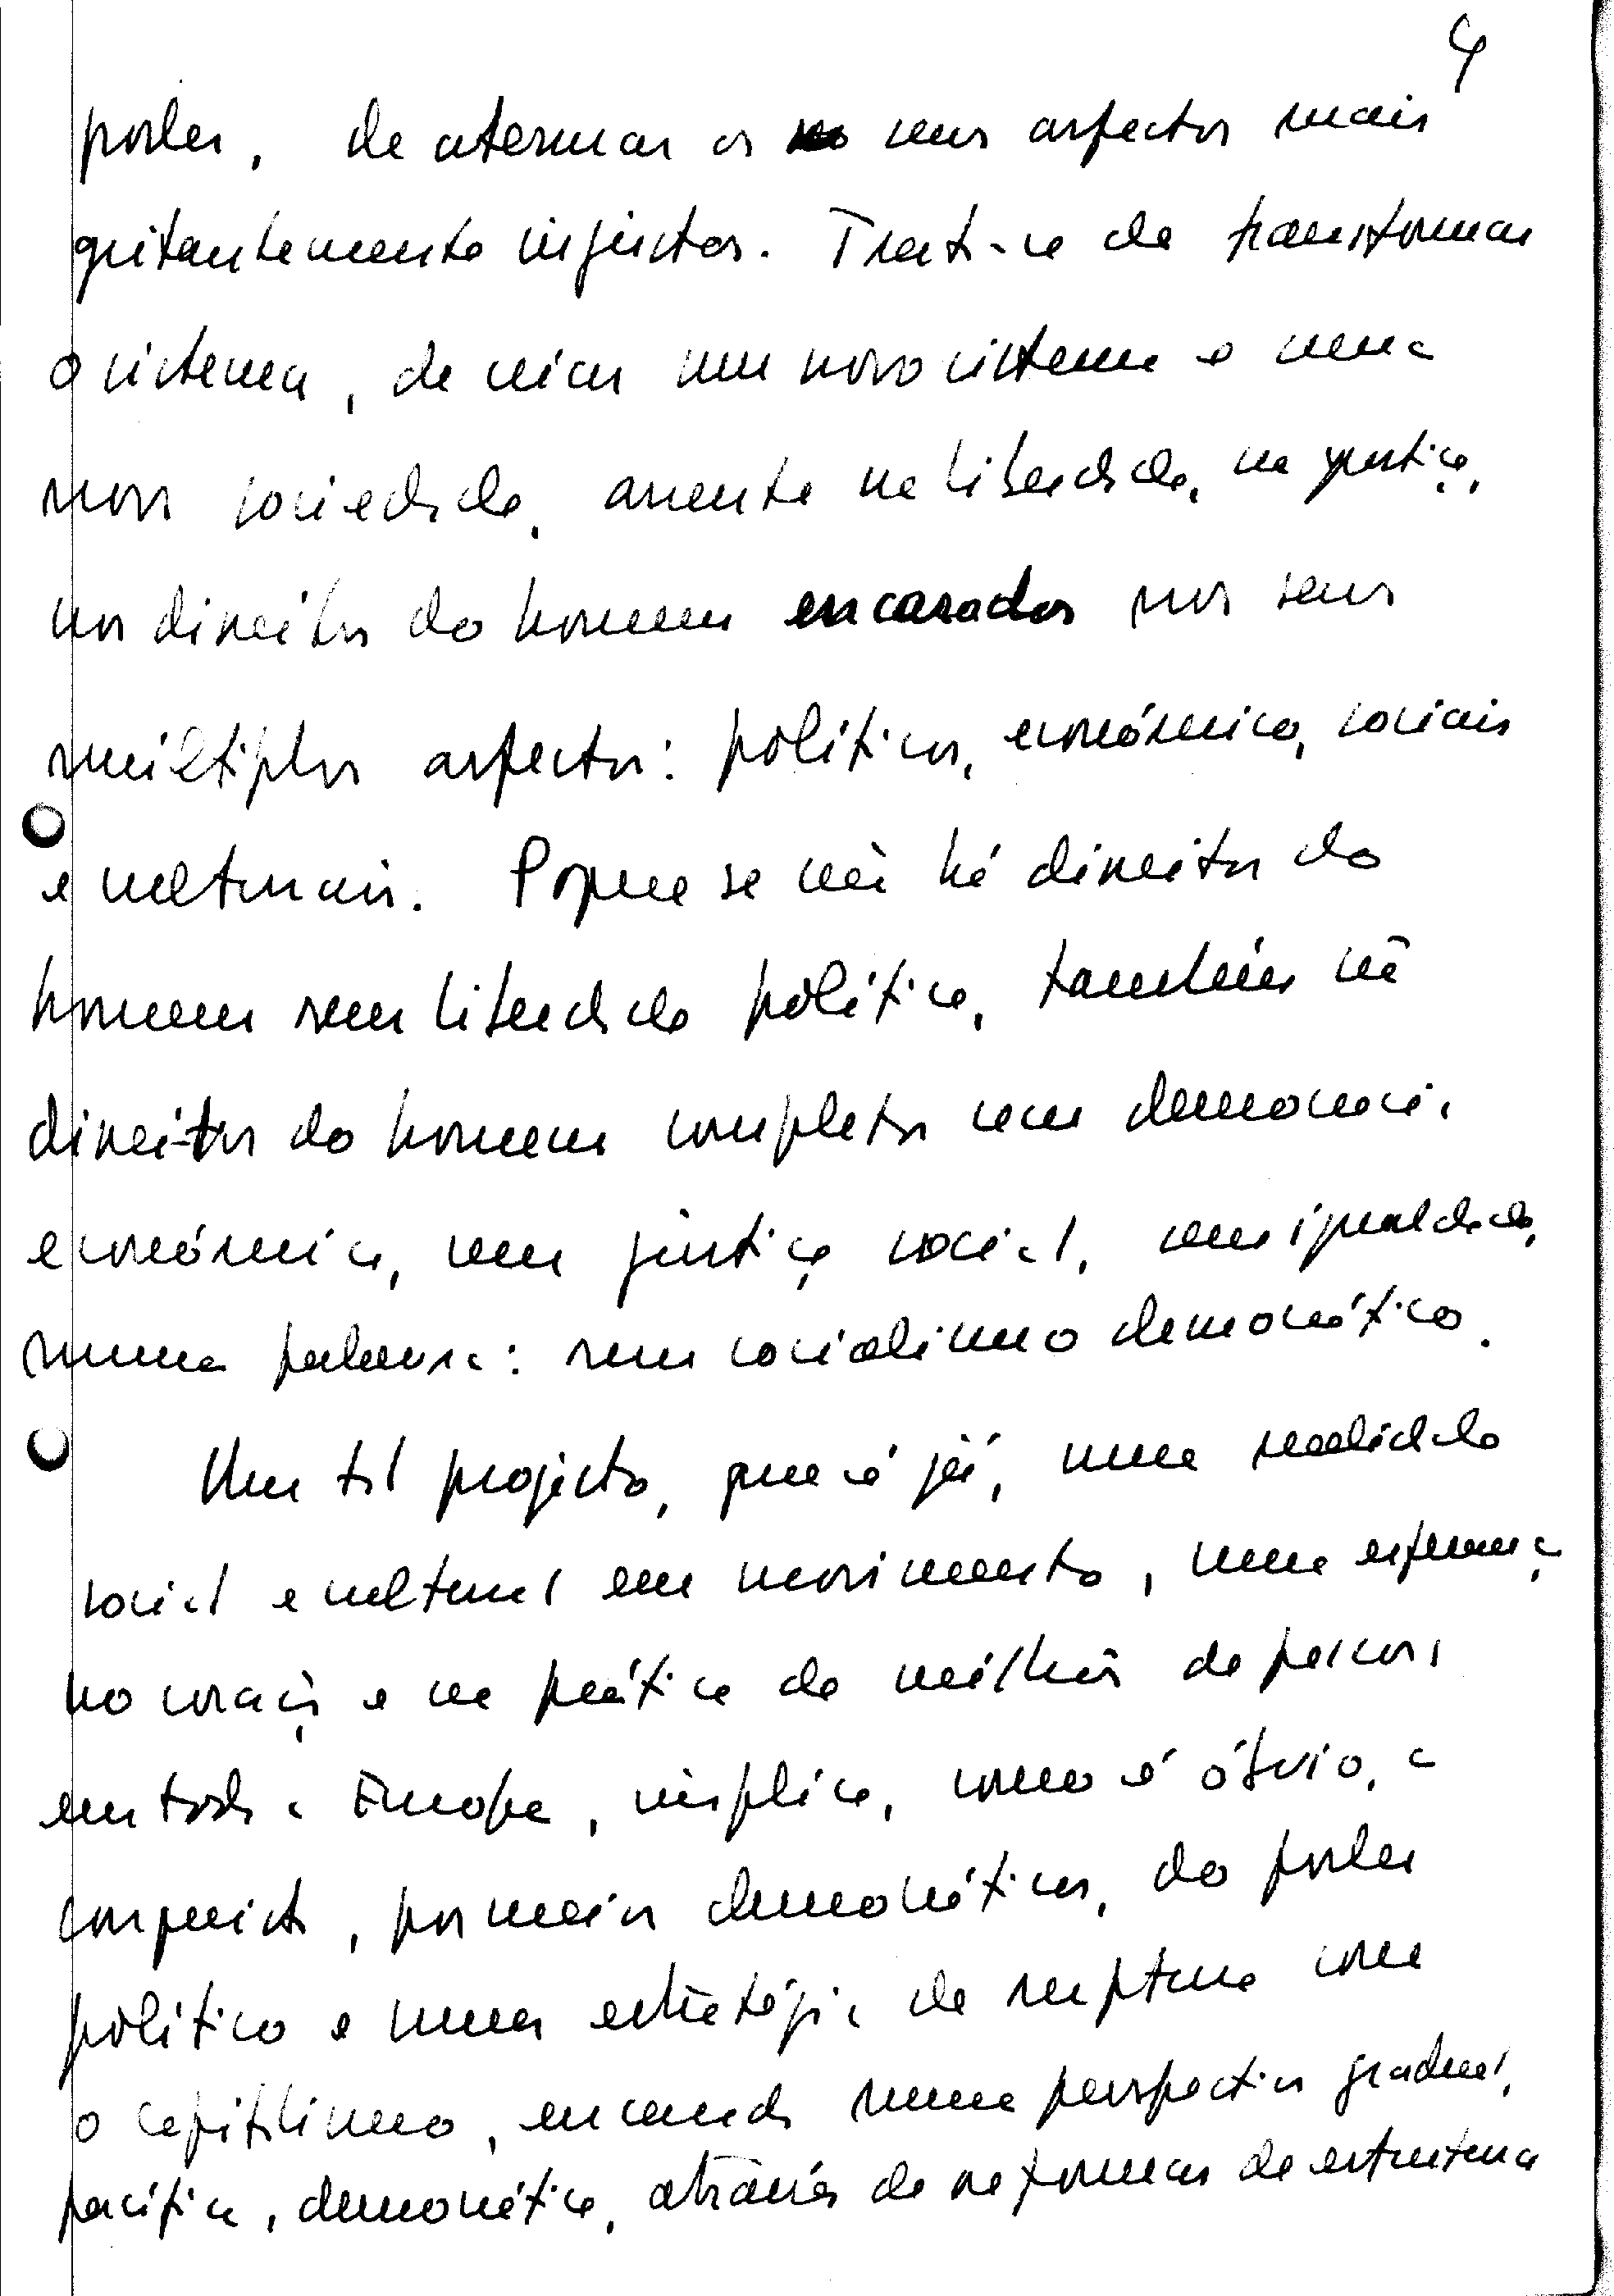 4
poder, de atenuar os seus aspectos mais
gritantemente injustos. Trata-se de transformar
o sistema, de criar um novo sistema e uma
nova sociedade, assente na liberdade, na justiça,
nos direitos do homem encarados nos seus
múltiplos aspectos: políticos, económicos, sociais
e culturais. Porque se não há direitos do
homem sem liberdade política, também não há
direitos do homem completos sem democracia
económica, sem justiça social, sem igualdade,
numa palavra: sem socialismo democrático.
Um tal projecto, que é já, uma realidade
social e cultural em movimento, uma esperança
no coração e na prática de milhões de pessoas
em toda a Europa, implica, como é óbvio, a
conquista, por meios democráticos, do poder
político e uma estratégia de ruptura com
o capitalismo, encarada numa perspectiva gradual,
pacífica, democrática, através de reformas de estrutura